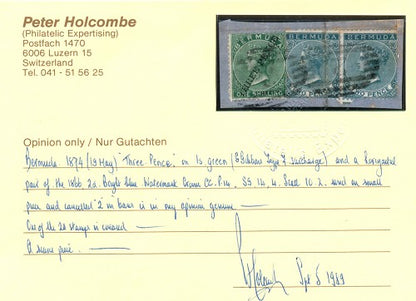 Peter Holcombe
(Philatelic Expertising)
Postfach 1470
6006 Luzern 15
Switzerland
Tel. 041 - 51 56 25
BERMUDA BERMUDA BERMUDA
ONE SHILLING TWO PENCE TWO PENCE
Opinion only / Nur Gutachten
Bermuda 1874 (19 May) "Three Pence" on 1s green (Gibbons Type surcharge) and a
pair of the 1866 2d. Bright blue Watermark Crown CC. P.14, SG 14, 4. used on small
piece and cancelled "2" in bars is in my opinion genuine
One of the 2d stamps is creased
A rare piece.
Holcombe Sept 8 1989